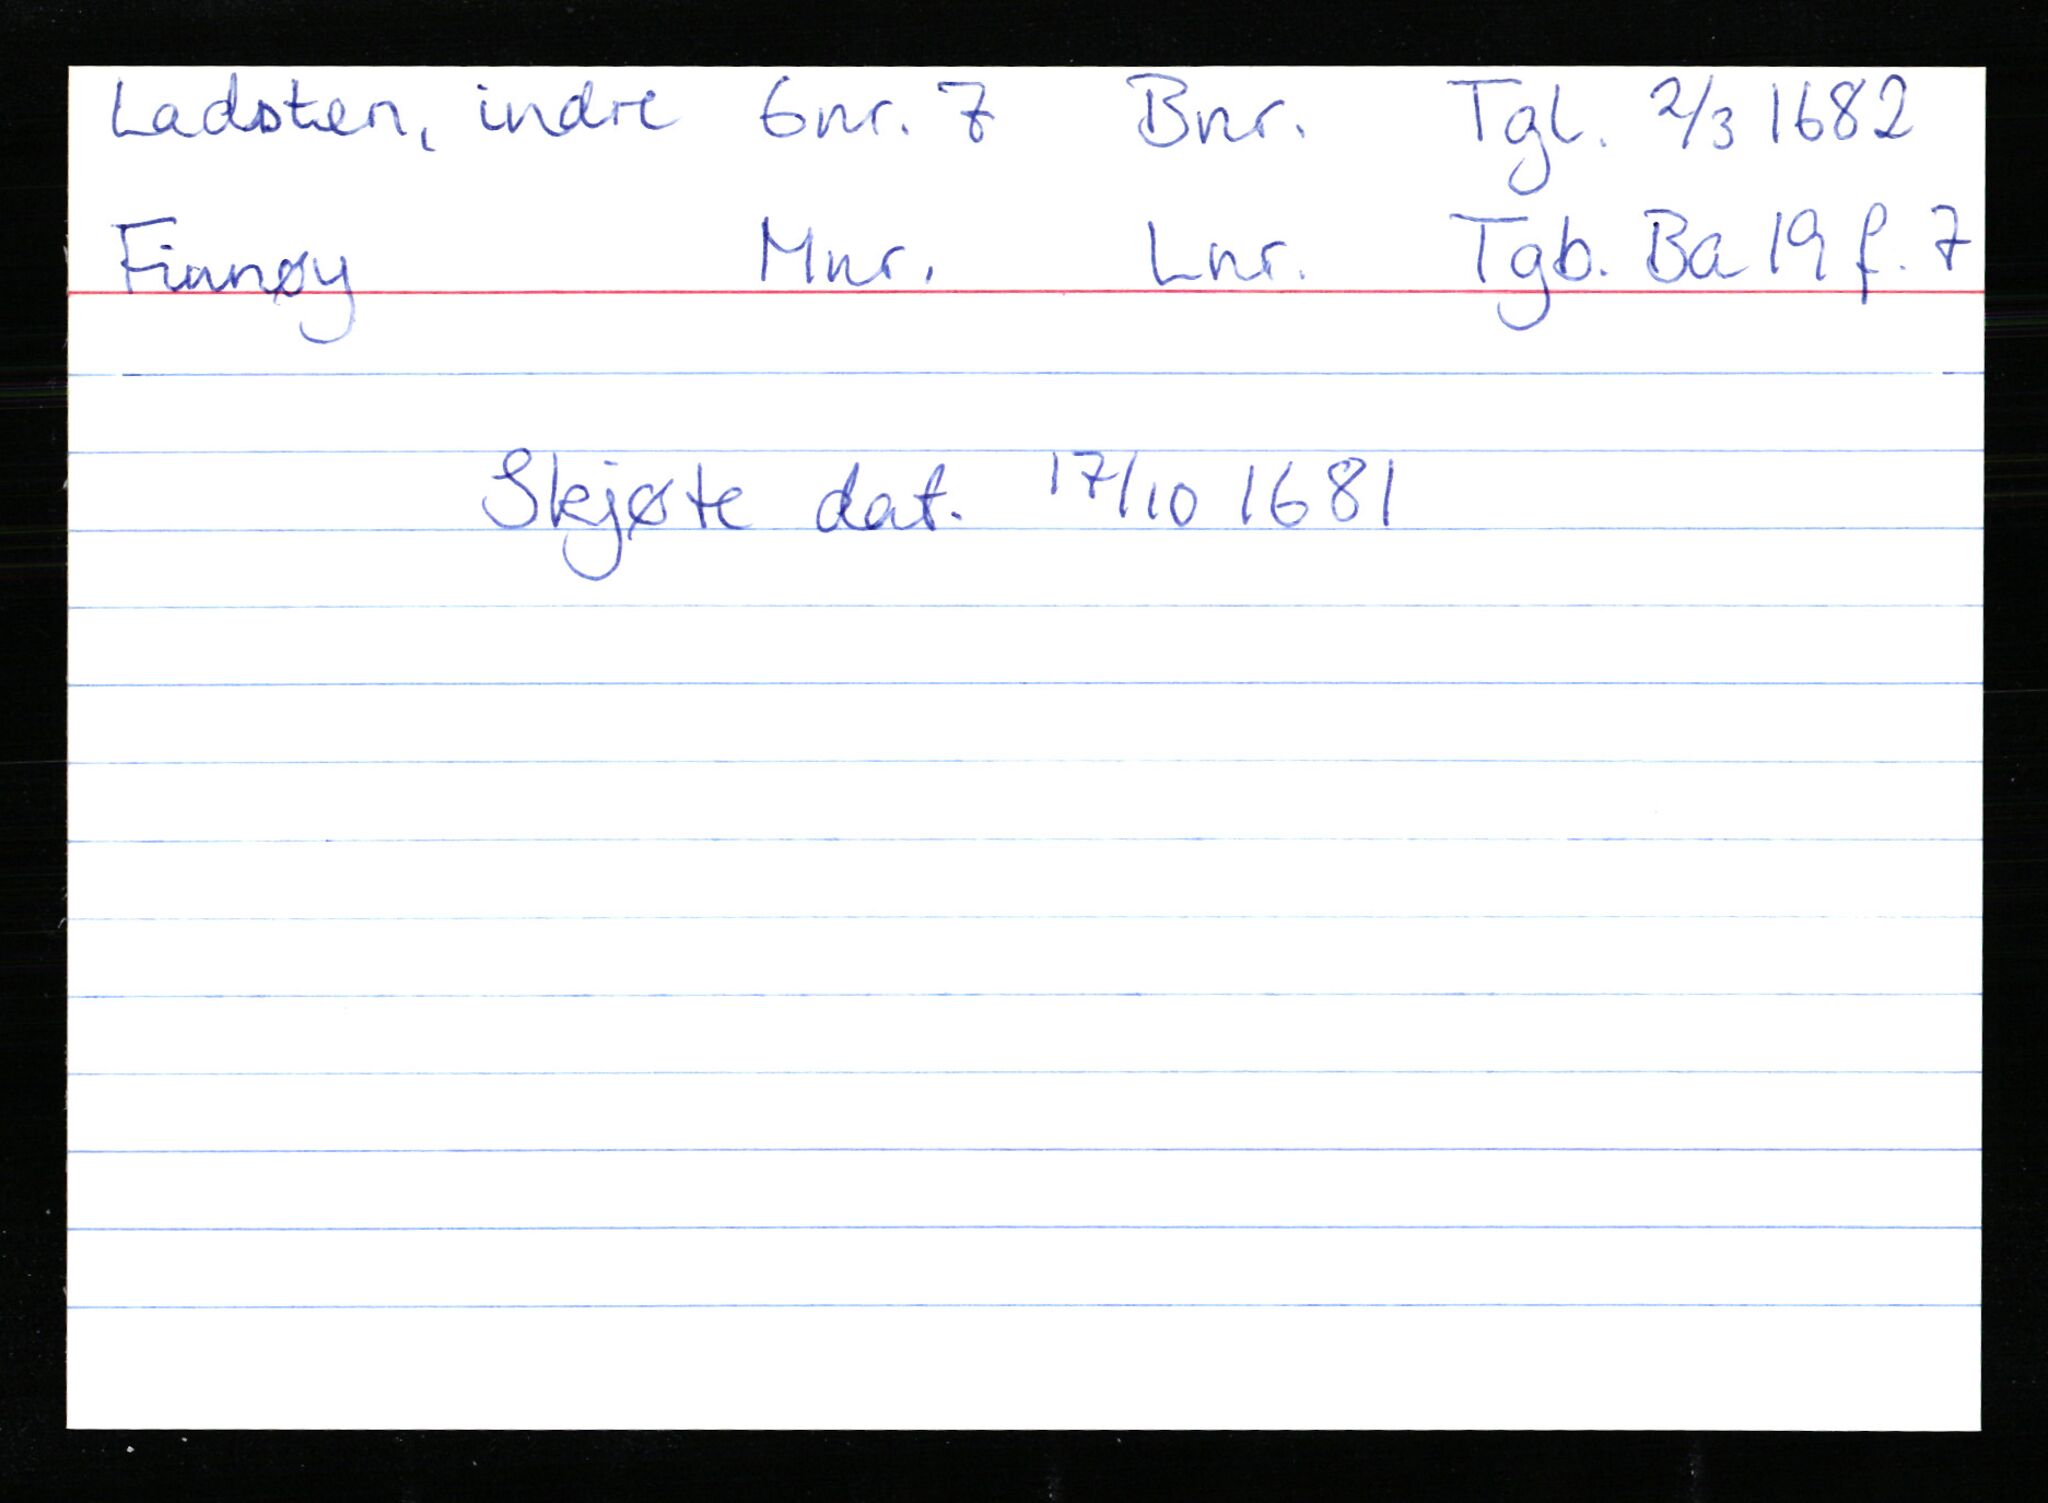 Ladsten, indre Gnr. 7 Bnr. Tgl. 2/3 1682
Finnøy Mnr. Lnr. Tgb. Ba 19 f. 7
Skjøte dat. 17/10 1681